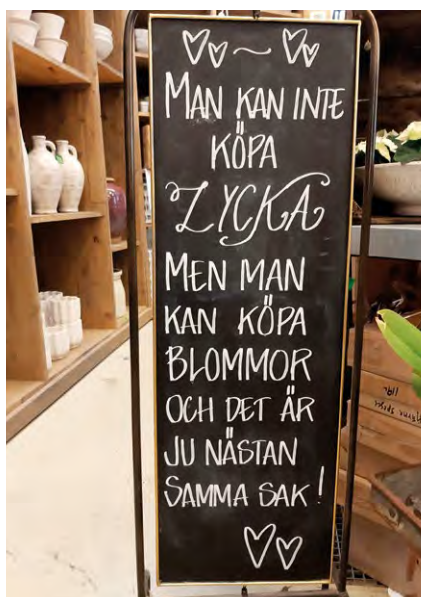 MAN KAN INTE
KÖPA
LYCKA
MEN MAN
KAN KÖPA
BLOMMOR
OCH DET ÄR
JU NÄSTAN
SAMMA SAK!